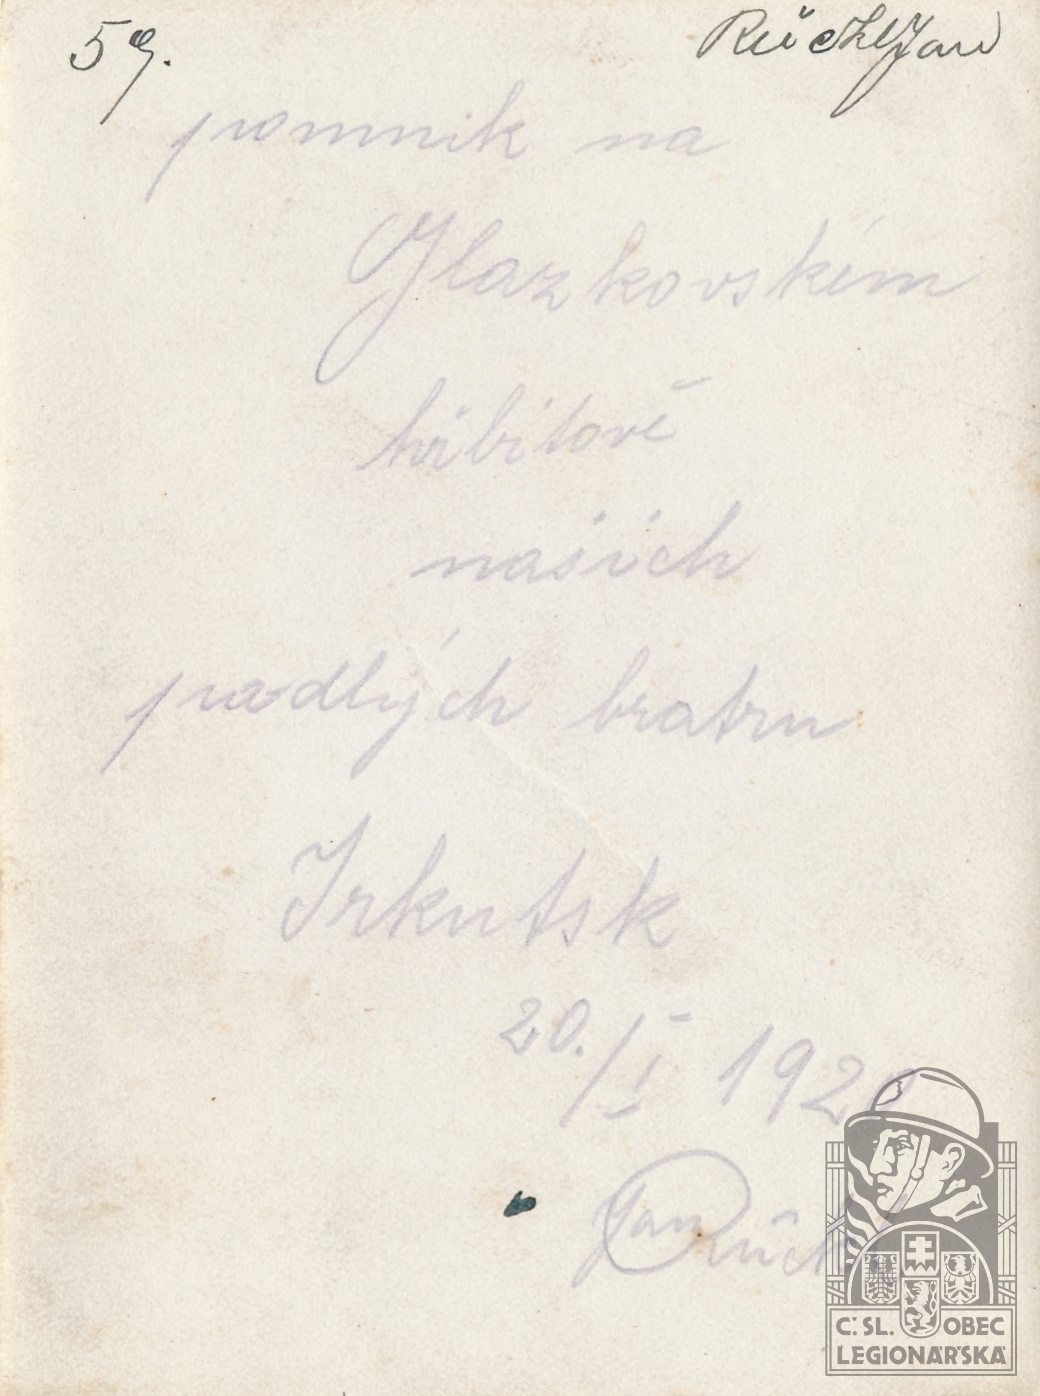 59. Růckl Jan
pomnik na
Glazkovském
hřbitově
našich
padlých bratru
Irkutsk
20./I 1920
Jan Růckl
Č.SL. OBEC
LEGIONÁŘSKÁ